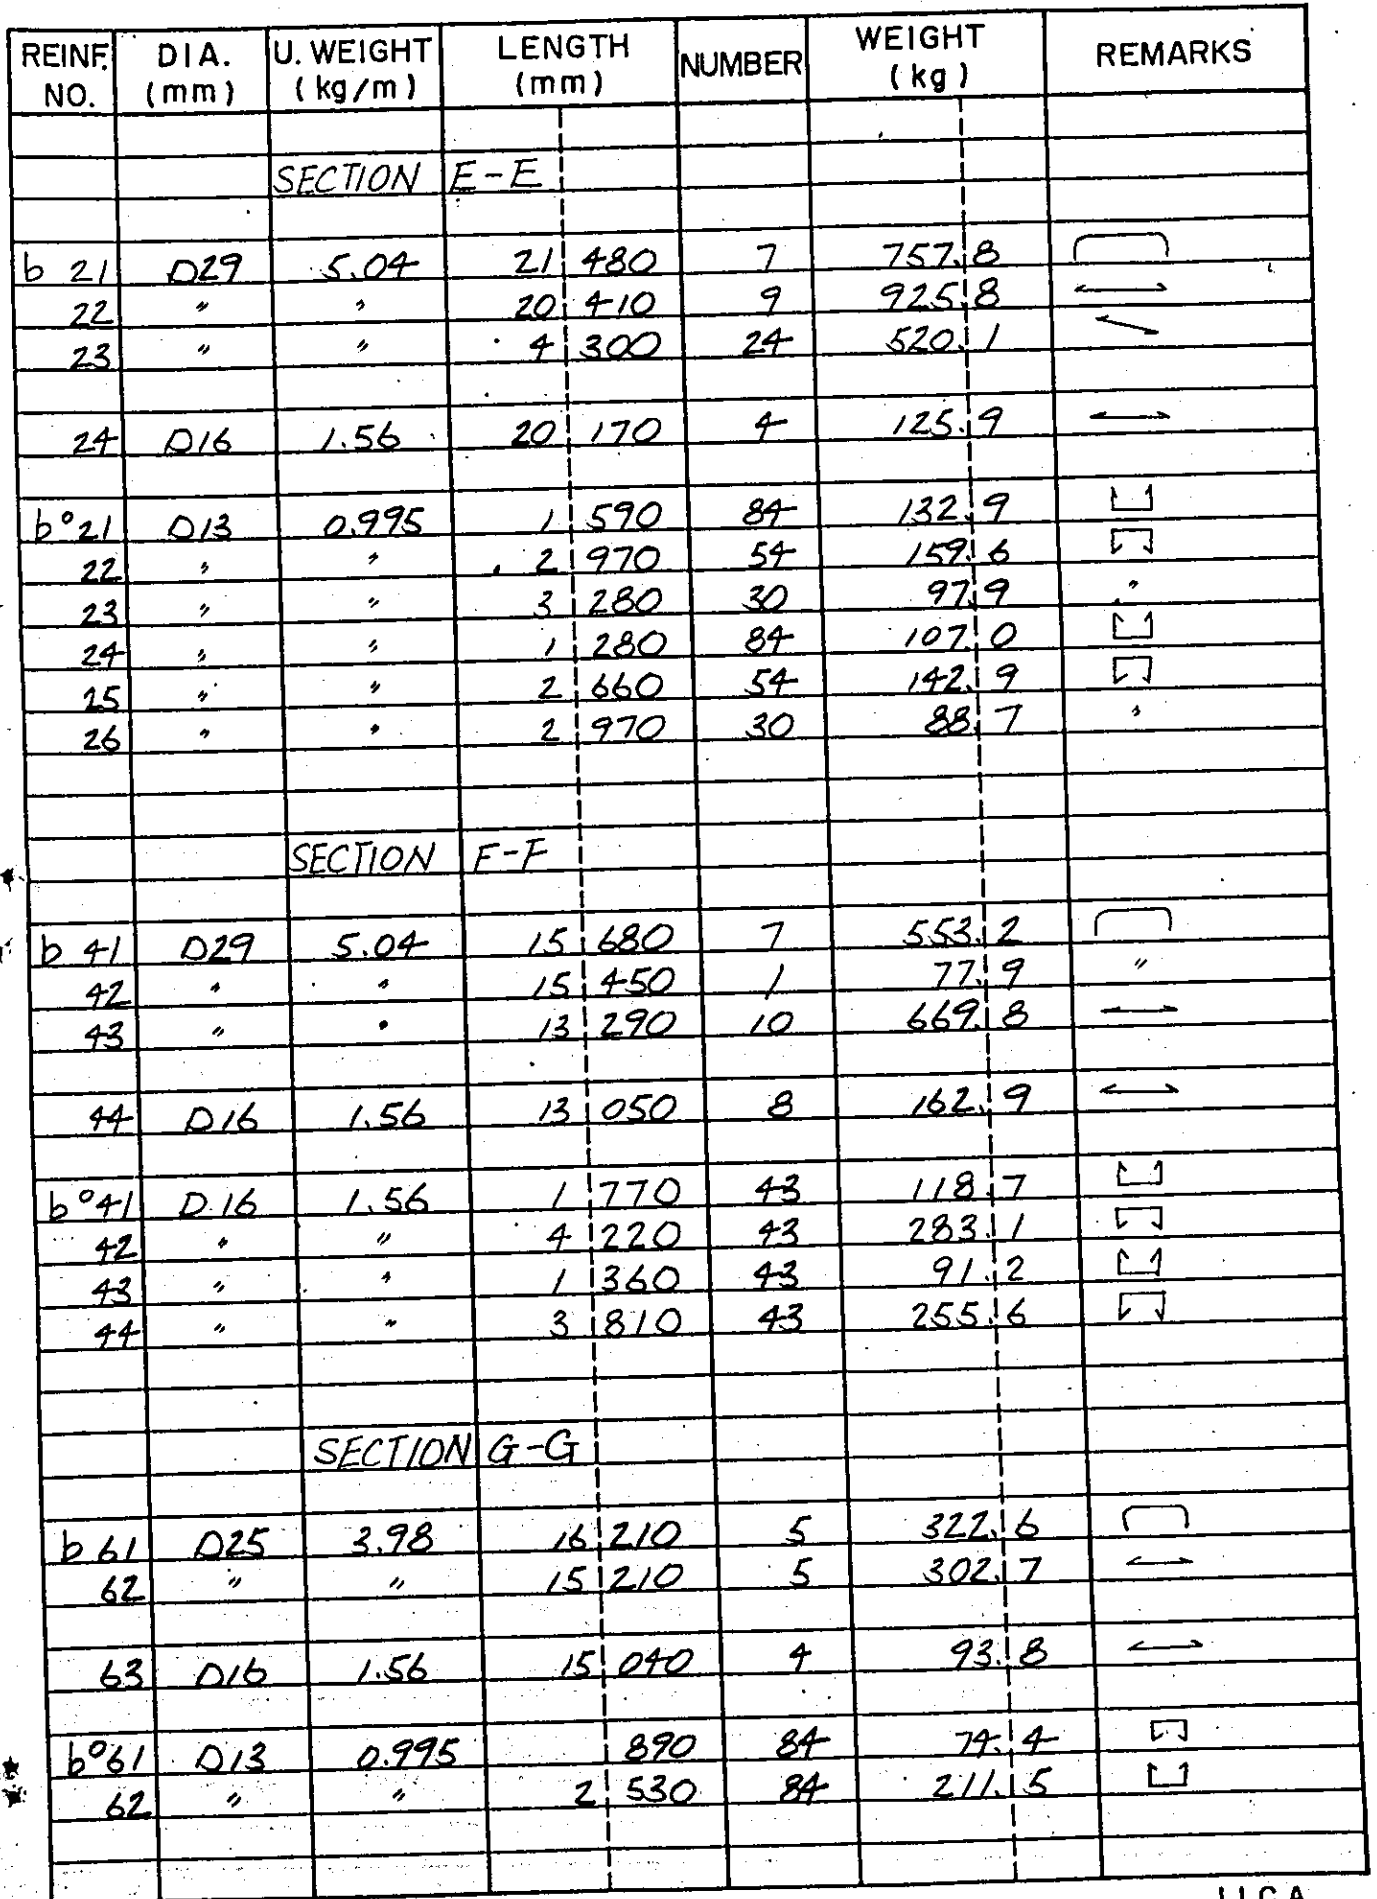 REINF. NO. DIA. (mm) U. WEIGHT (kg/m) LENGTH (mm) NUMBER WEIGHT (kg) REMARKS
SECTION E-E
b 21 D29 5.04 21 480 7 757.8
22 〃 〃 20 410 9 925.8
23 〃 〃 4 300 24 520.1
24 D16 1.56 20 170 4 125.9
b°21 D13 0.995 1 590 84 132.9
22 〃 〃 2 970 54 159.6
23 〃 〃 3 280 30 97.9 〃
24 〃 〃 1 280 84 107.0
25 〃 〃 2 660 54 142.9
26 〃 〃 2 970 30 88.7 〃
SECTION F-F
b 41 D29 5.04 15 680 7 553.2
42 〃 〃 15 450 1 77.9 〃
43 〃 〃 13 290 10 669.8
44 D16 1.56 13 050 8 162.9
b°41 D16 1.56 1 770 43 118.7
42 〃 〃 4 220 43 283.1
43 〃 〃 1 360 43 91.2
44 〃 〃 3 810 43 255.6
SECTION G-G
b 61 D25 3.98 16 210 5 322.6
62 〃 〃 15 210 5 302.7
63 D16 1.56 15 040 4 93.8
b°61 D13 0.995 890 84 74.4
62 〃 〃 2 530 84 211.5